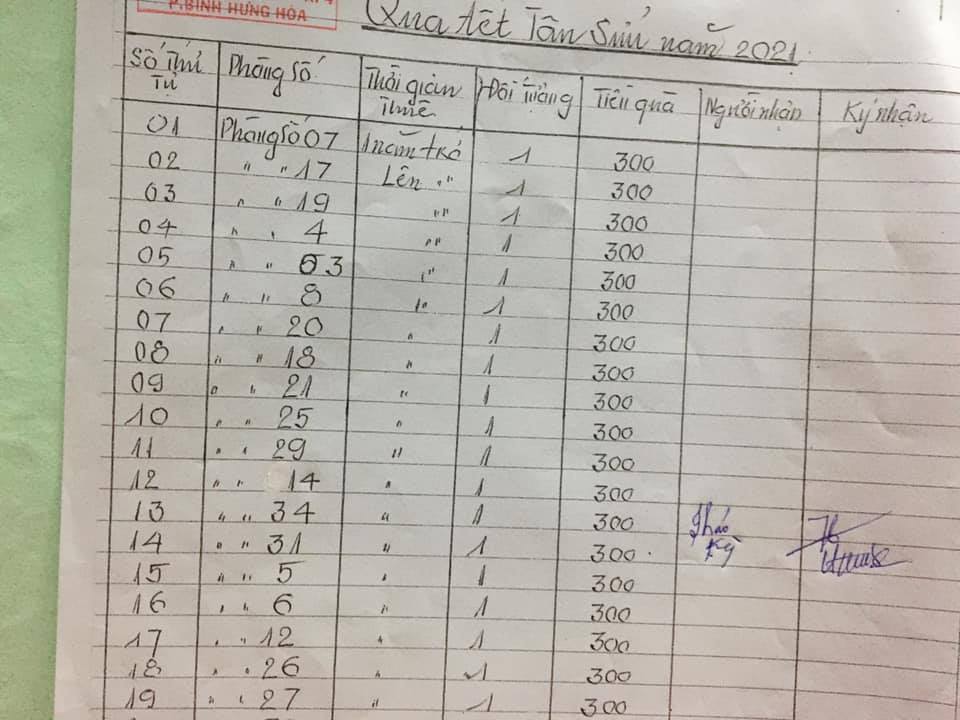 P.BÌNH HƯNG HÒA
Quà tết Tân Sửu năm 2021
Số Thứ Tự Phòng Số Thời gian Thuê Đối Tượng Tiền quà Người nhận Ký nhận
01 Phòng Số 07 1 năm trở Lên 1 300
02 " " 17 " 1 300
03 " " 19 " 1 300
04 " " 4 " 1 300
05 " " 63 " 1 300
06 " " 8 " 1 300
07 " " 20 " 1 300
08 " " 18 " 1 300
09 " " 21 " 1 300
10 " " 25 " 1 300
11 " " 29 " 1 300
12 " " 14 " 1 300
13 " " 34 " 1 300 Thảo
14 " " 31 " 1 300 Kỳ
15 " " 5 " 1 300
16 " " 6 " 1 300
17 " " 12 " 1 300
18 " " 26 " 1 300
19 " " 27 " 1 300